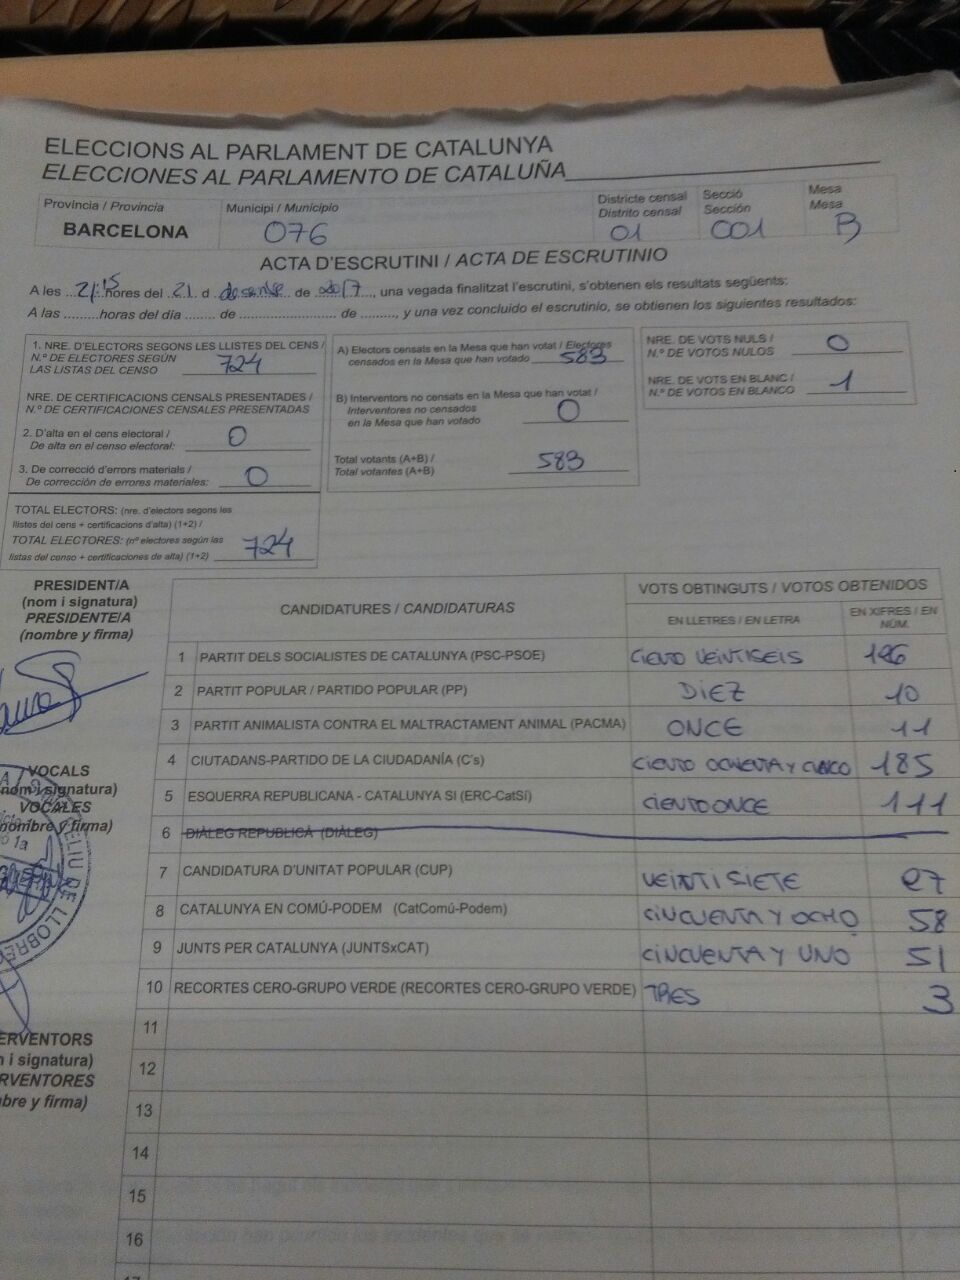 ELECCIONS AL PARLAMENT DE CATALUNYA
ELECCIONES AL PARLAMENTO DE CATALUÑA
Província / Provincia Municipi / Municipio Districte censal Secció Mesa
Distrito censal Sección Mesa
BARCELONA 076 01 001 B
ACTA D'ESCRUTINI / ACTA DE ESCRUTINIO
A les 21:15 hores del 21 d desembre de 2017, una vegada finalitzat l'escrutini, s'obtenen els resultats següents:
A las .........horas del día ....... de ........................ de ........., y una vez concluido el escrutinio, se obtienen los siguientes resultados:
1. NRE. D'ELECTORS SEGONS LES LLISTES DEL CENS /
N.º DE ELECTORES SEGÚN
LAS LISTAS DEL CENSO 724
NRE. DE CERTIFICACIONS CENSALS PRESENTADES /
N.º DE CERTIFICACIONES CENSALES PRESENTADAS
2. D'alta en el cens electoral /
De alta en el censo electoral: 0
3. De correcció d'errors materials /
De corrección de errores materiales: 0
TOTAL ELECTORS: (nre. d'electors segons les
llistes del cens + certificacions d'alta) (1+2) /
TOTAL ELECTORES: (nº electores según las
listas del censo + certificaciones de alta) (1+2) 724
A) Electors censats en la Mesa que han votat / Electores
censados en la Mesa que han votado 583
B) Interventors no censats en la Mesa que han votat /
Interventores no censados
en la Mesa que han votado 0
Total votants (A+B) /
Total votantes (A+B) 583
NRE. DE VOTS NULS /
N.º DE VOTOS NULOS 0
NRE. DE VOTS EN BLANC /
N.º DE VOTOS EN BLANCO 1
PRESIDENT/A
(nom i signatura)
PRESIDENTE/A
(nombre y firma)
VOCALS
nom i signatura)
VOCALES
nombre y firma)
ELIU DE LLOBRE
ERVENTORS
i signatura)
RVENTORES
bre y firma)
CANDIDATURES / CANDIDATURAS VOTS OBTINGUTS / VOTOS OBTENIDOS
EN LLETRES / EN LETRA EN XIFRES / EN NÚM.
1 PARTIT DELS SOCIALISTES DE CATALUNYA (PSC-PSOE) CIENTO VEINTISEIS 126
2 PARTIT POPULAR / PARTIDO POPULAR (PP) DIEZ 10
3 PARTIT ANIMALISTA CONTRA EL MALTRACTAMENT ANIMAL (PACMA) ONCE 11
4 CIUTADANS-PARTIDO DE LA CIUDADANÍA (C's) CIENTO OCHENTA Y CINCO 185
5 ESQUERRA REPUBLICANA - CATALUNYA SI (ERC-CatSí) CIENTO ONCE 111
6 DIÀLEG REPUBLICÀ (DIÀLEG)
7 CANDIDATURA D'UNITAT POPULAR (CUP) VEINTISIETE 27
8 CATALUNYA EN COMÚ-PODEM (CatComú-Podem) CINCUENTA Y OCHO 58
9 JUNTS PER CATALUNYA (JUNTSxCAT) CINCUENTA Y UNO 51
10 RECORTES CERO-GRUPO VERDE (RECORTES CERO-GRUPO VERDE) TRES 3
11
12
13
14
15
16
17